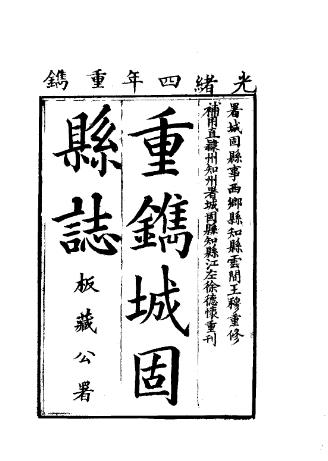 光緒四年重鐫
署城固縣事西鄉縣知縣雲間王穆重修
補用直隸州知州署城固縣知縣江左徐德懷重刊
重鐫城固
縣誌
板藏公署